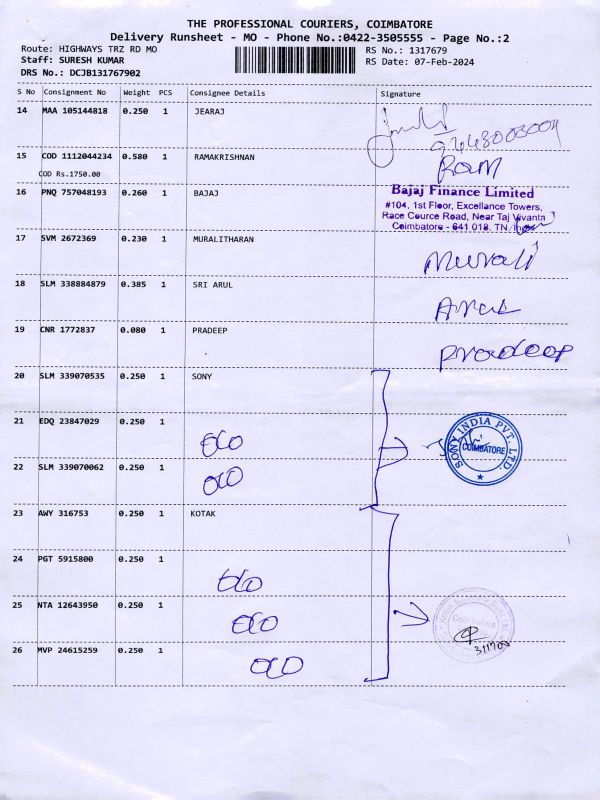 THE PROFESSIONAL COURIERS, COIMBATORE
Delivery Runsheet - MO - Phone No.:0422-3505555 - Page No.:2
Route: HIGHWAYS TRZ RD MO RS No.: 1317679
Staff: SURESH KUMAR RS Date: 07-Feb-2024
DRS No.: DCJB131767902
S No Consignment No Weight PCS Consignee Details Signature
14 MAA 105144818 0.250 1 JEARAJ
15 COD 1112044234 0.580 1 RAMAKRISHNAN Ram
COD Rs.1750.00
16 PNQ 757048193 0.260 1 BAJAJ
Bajaj Finance Limited
#104, 1st Floor, Excellance Towers,
Race Cource Road, Near Taj Vivanta
Coimbatore - 641 018. TN
17 SVM 2672369 0.230 1 MURALITHARAN Murali
18 SLM 338884879 0.385 1 SRI ARUL Arul
19 CNR 1772837 0.080 1 PRADEEP Pradeep
20 SLM 339070535 0.250 1 SONY
21 EDQ 23847029 0.250 1
SONY INDIA PVT. LTD.
COIMBATORE
22 SLM 339070062 0.250 1
23 AWY 316753 0.250 1 KOTAK
24 PGT 5915800 0.250 1
25 NTA 12643950 0.250 1
26 MVP 24615259 0.250 1